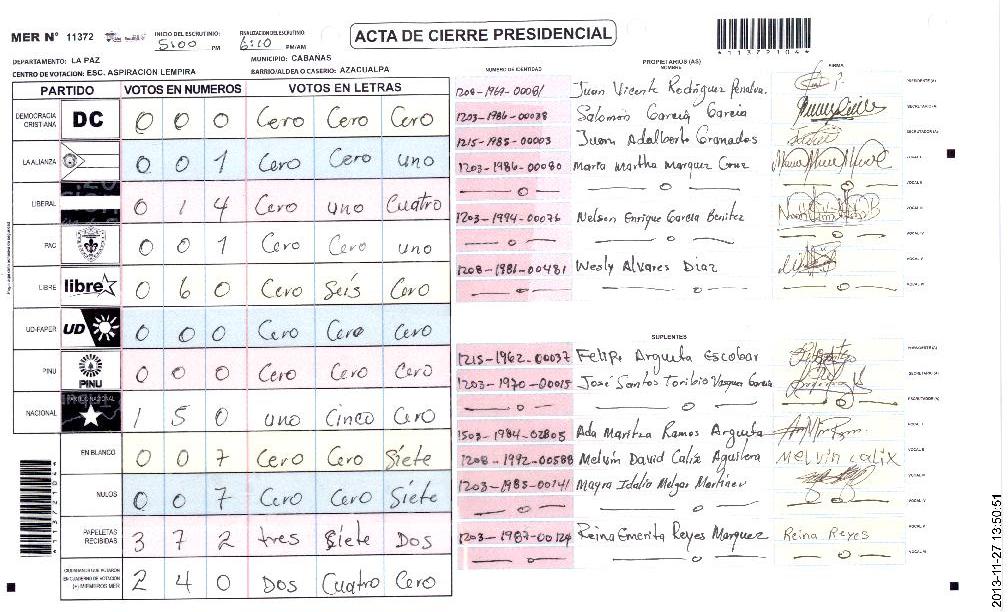 MER Nº 11372
INICIO DEL ESCRUTINIO: 5:00 PM
FINALIZACION DEL ESCRUTINIO: 6:10 PM/AM
ACTA DE CIERRE PRESIDENCIAL
*11372104*
DEPARTAMENTO: LA PAZ
MUNICIPIO: CABAÑAS
CENTRO DE VOTACION: ESC. ASPIRACION LEMPIRA
BARRIO/ALDEA O CASERIO: AZACUALPA
PARTIDO VOTOS EN NUMEROS VOTOS EN LETRAS
DEMOCRACIA CRISTIANA DC 0 0 0 Cero Cero Cero
LA ALIANZA 0 0 1 Cero Cero uno
LIBERAL 0 1 4 Cero uno Cuatro
PAC 0 0 1 Cero Cero uno
LIBRE libre 0 6 0 Cero Seis Cero
UD-FAPER UD 0 0 0 Cero Cero Cero
PINU PINU 0 0 0 Cero Cero Cero
NACIONAL PARTIDO NACIONAL 1 5 0 uno Cinco Cero
EN BLANCO 0 0 7 Cero Cero Siete
NULOS 0 0 7 Cero Cero Siete
PAPELETAS RECIBIDAS 3 7 2 tres Siete Dos
CIUDADANOS QUE VOTARON EN CUADERNO DE VOTACION (+) MIEMBROS MER 2 4 0 Dos Cuatro Cero
PROPIETARIOS (AS)
NUMERO DE IDENTIDAD NOMBRE FIRMA
1208-1969-00081 Juan Vicente Rodriguez Penalva. PRESIDENTE(A)
1203-1986-00038 Salomon Garcia Garcia SECRETARIO(A)
1215-1985-00003 Juan Adalberto Granados ESCRUTADOR(A)
1203-1986-00080 Maria Martha Marquez Cruz VOCAL I
VOCAL II
1203-1994-00076 Nelson Enrique Garcia Benitez VOCAL III
VOCAL IV
1208-1981-00481 Wesly Alvares Diaz VOCAL V
VOCAL VI
SUPLENTES
1215-1962-00037 Felipe Argueta Escobar PRESIDENTE(A)
1203-1970-00015 José Santos Toribio Vasquez Garcia SECRETARIO(A)
ESCRUTADOR(A)
1503-1984-02805 Ada Maritza Ramos Argueta VOCAL I
1208-1992-00588 Melvin David Calix Aguilera MELVIN CALIX VOCAL II
1203-1985-00141 Mayra Idalia Melgar Martinez VOCAL III
VOCAL IV
1203-1987-00124 Reina Emerita Reyes Marquez Reina Reyes VOCAL V
VOCAL VI
*11372104*
2013-11-27 13:50:51